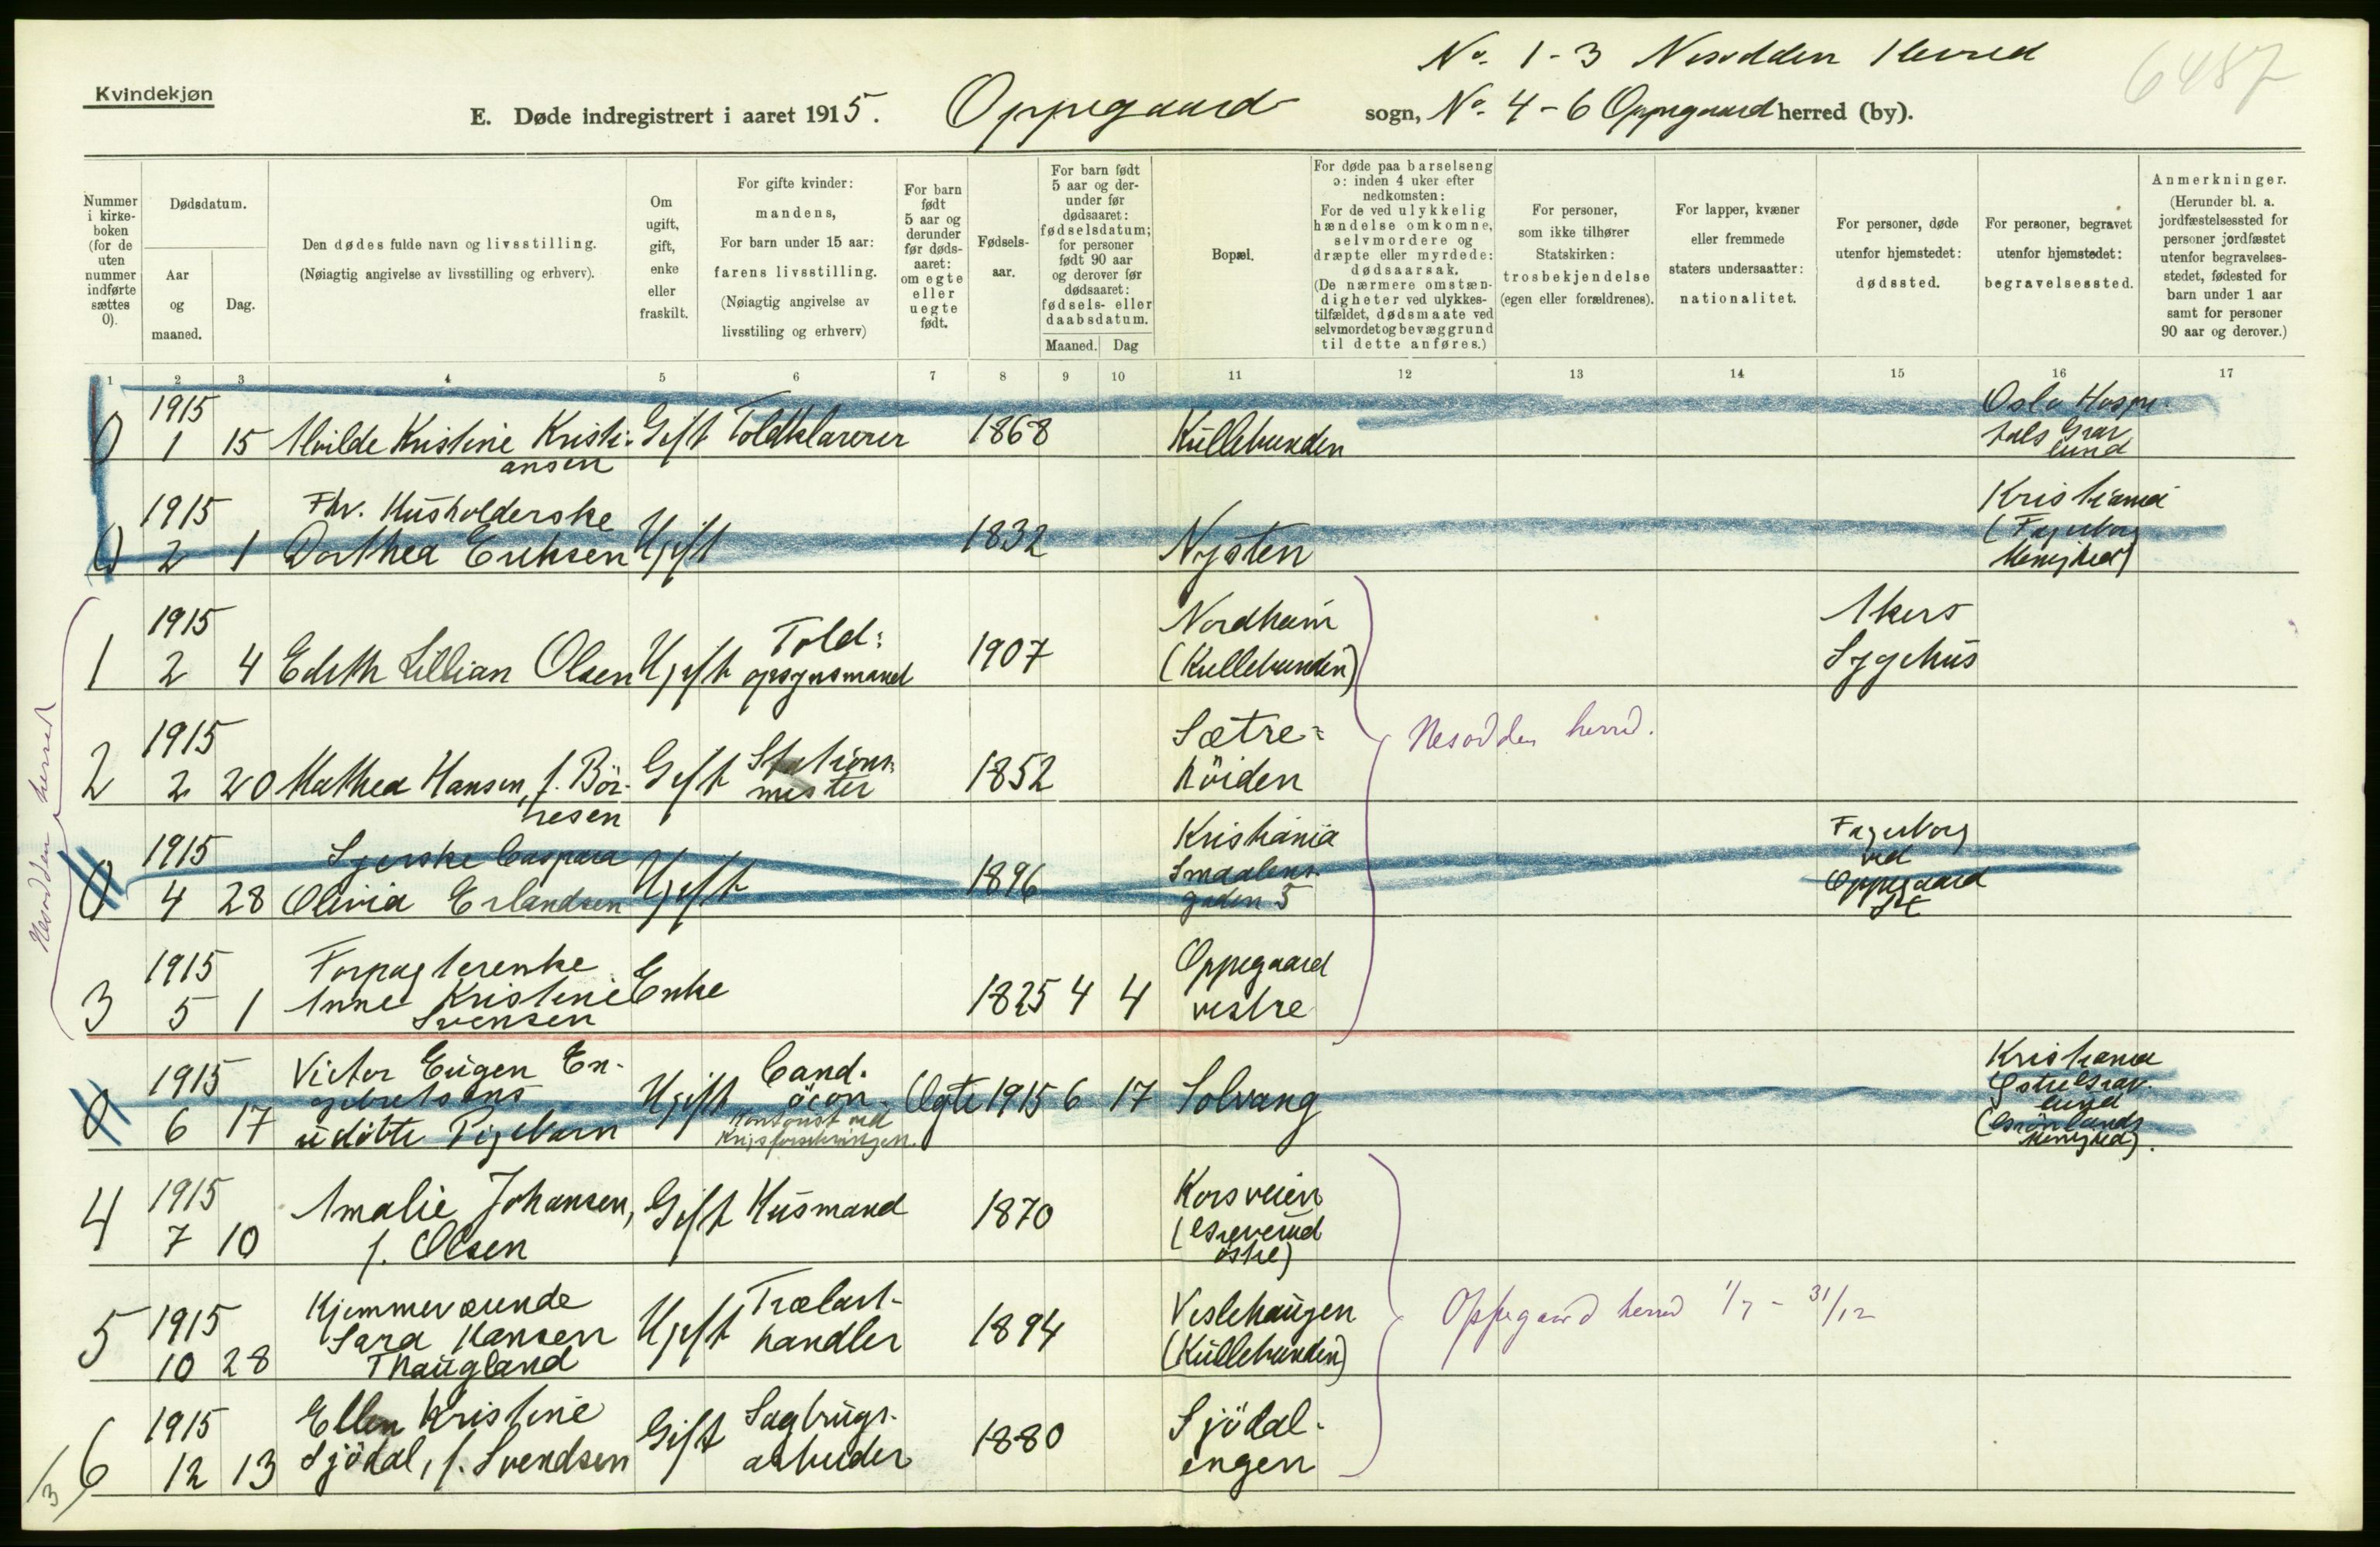 No. 1-3 Nesodden Herred
6487
Kvindekjøn
E. Døde indregistrert i aaret 1915. Oppegaard sogn, No. 4-6 Oppegaard herred (by).
Nummer i kirke-boken (for de uten nummer indførte sættes 0).
Dødsdatum.
Aar og maaned.
Dag.
Den dødes fulde navn og livsstilling.
(Nøiagtig angivelse av livsstilling og erhverv).
Om ugift, gift, enke eller fraskilt.
For gifte kvinder: mandens,
For barn under 15 aar: farens livsstilling.
(Nøiagtig angivelse av livsstiling og erhverv)
For barn født 5 aar og derunder før døds-aaret: om egte eller uegte født.
Fødsels-aar.
For barn født 5 aar og der-under før dødsaaret: fødselsdatum; for personer født 90 aar og derover før dødsaaret: fødsels- eller daabsdatum.
Maaned. Dag
Bopæl.
For døde paa barselseng ɔ: inden 4 uker efter nedkomsten:
For de ved ulykkelig hændelse omkomne, selvmordere og dræpte eller myrdede: dødsaarsak.
(De nærmere omstæn-digheter ved ulykkes-tilfældet, dødsmaate ved selvmordet og bevæggrund til dette anføres.)
For personer, som ikke tilhører Statskirken: trosbekjendelse (egen eller forældrenes).
For lapper, kvæner eller fremmede staters undersaatter: nationalitet.
For personer, døde utenfor hjemstedet: dødssted.
For personer, begravet utenfor hjemstedet: begravelsessted.
Anmerkninger.
(Herunder bl. a. jordfæstelsessted for personer jordfæstet utenfor begravelses-stedet, fødested for barn under 1 aar samt for personer 90 aar og derover.)
1 2 3 4 5 6 7 8 9 10 11 12 13 14 15 16 17
0 1915 1 15 Alvilde Kristine Kristi-ansen Gift Toldklarerer 1868 Kullebunden Oslo Hospi-tals Grav lund
0 1915 2 1 Fhv. Husholderske Dorthea Eriksen Ugift 1832 Nysten Kristiania (Fagerborg Menighed)
1 1915 2 4 Edith Lillian Olsen Ugift Told: opsynsmand 1907 Nordheim (Kullebunden) Akers Sygehus
2 1915 2 20 Mathea Hansen, f. Bör-resen Gift Stations-mester 1852 Sætre=höiden
Nesodden herred.
Nesodden herred
0 1915 4 28 Syerske Caspara Olivia Erlandsen Ugift 1896 Kristiania Smaalens-gaden 5 Fagerborg ved Oppegaard St
3 1915 5 1 Forpagterenke Anne Kristine Svensen Enke 1825 4 4 Oppegaard vestre
0 1915 6 17 Victor Eugen En-gebretsens udöbte Pigebarn Ugift Cand. öcon. Kontorist ved Krigsforsikringen. Egte 1915 6 17 Solvang Kristiania Østre Grav-lund (Grönlands Menighed).
4 1915 7 10 Amalie Johansen, f. Olsen Gift Husmand 1870 Korsveien (Greverud östre)
5 1915 10 28 Hjemmeværende Sara Hansen Thaugland Ugift Trælast-handler 1894 Veslehaugen (Kullebunden)
Oppegaard herred 1/7 - 31/12
6 1915 12 13 Ellen Kristine Sjödal, f. Svendsen Gift Sagbrugs-arbeider 1880 Sjödal-engen
/3/